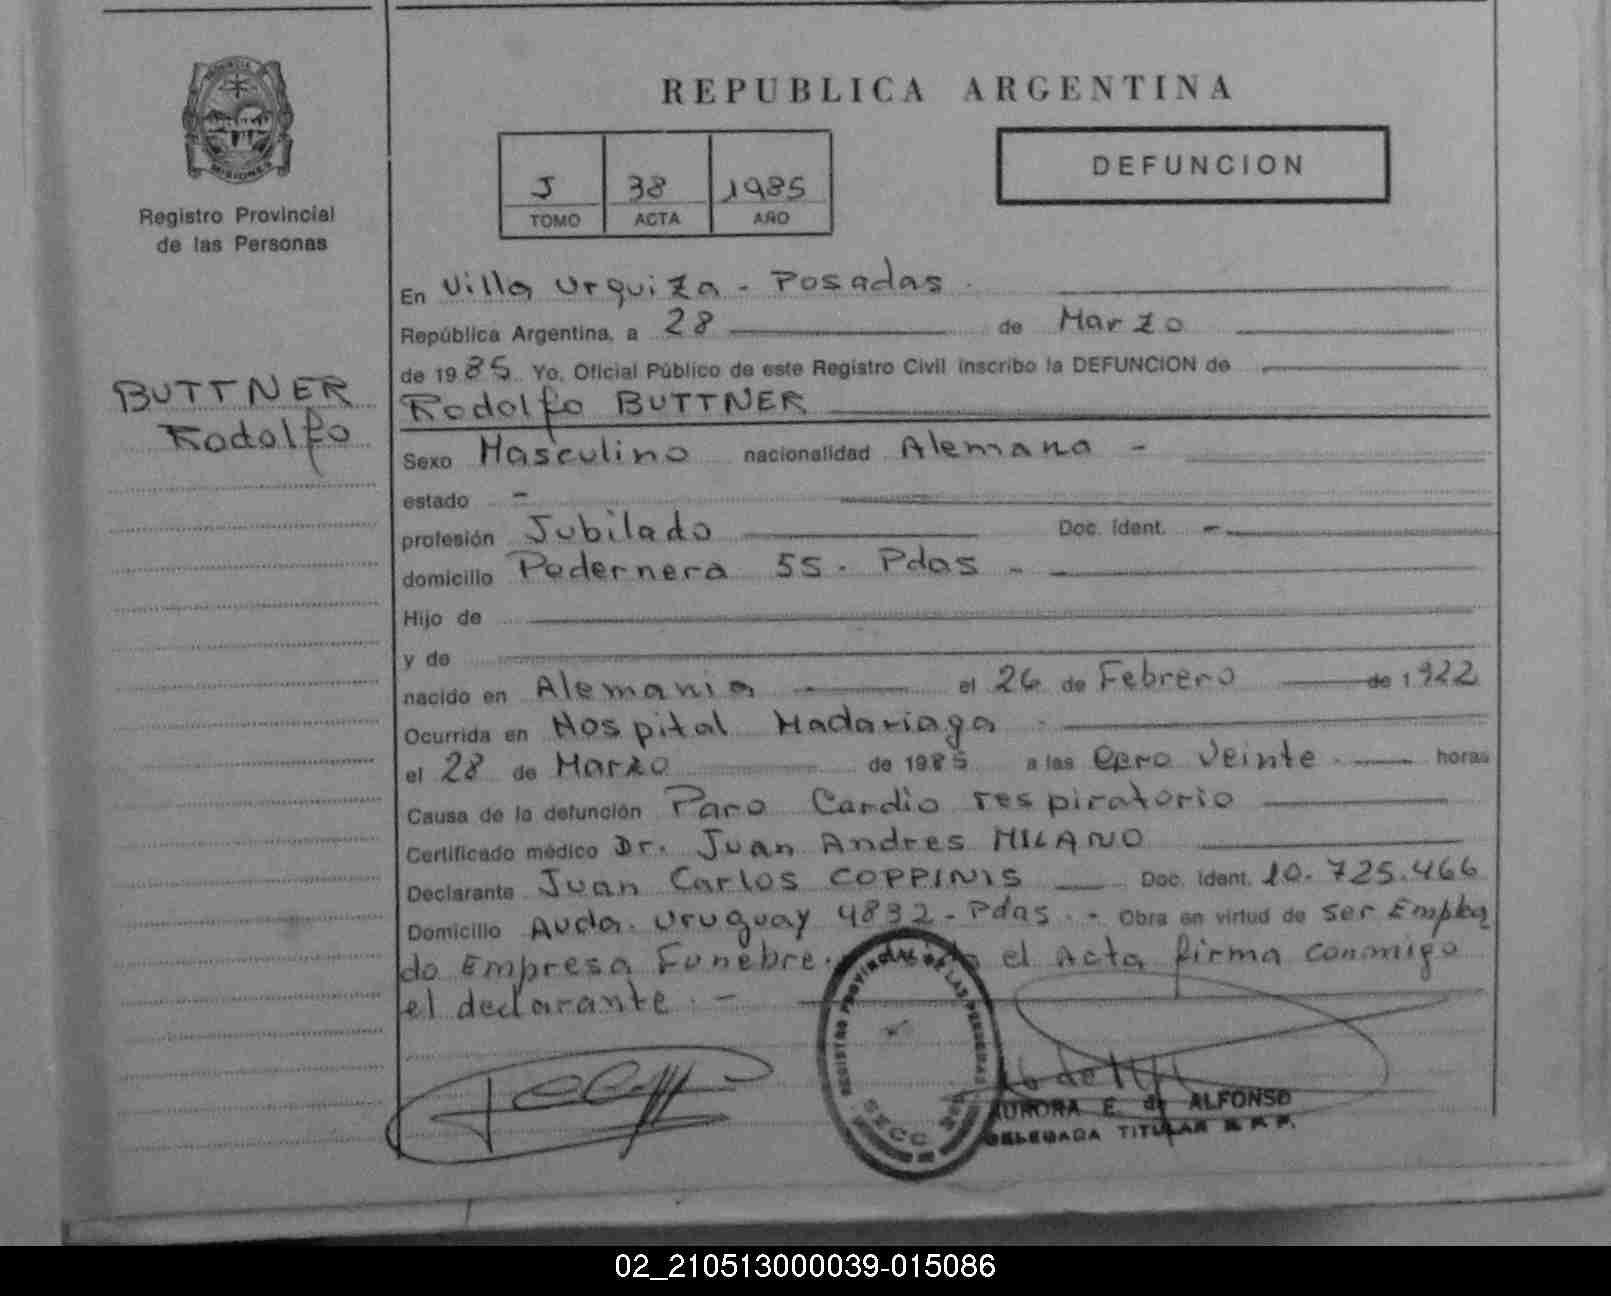 PROVINCIA DE
MISIONES
Registro Provincial
de las Personas
BUTTNER
Rodolfo
REPUBLICA ARGENTINA
J 38 1985
TOMO ACTA AÑO
DEFUNCION
En Villa Urquiza - Posadas.
República Argentina, a 28 de Marzo
de 1985 Yo, Oficial Público de este Registro Civil inscribo la DEFUNCION de
Rodolfo BUTTNER
Sexo Masculino nacionalidad Alemana -
estado -
profesión Jubilado Doc. Ident. -
domicilio Pedernera 55. Pdas -
Hijo de
y de
nacido en Alemania el 26 de Febrero de 1922
Ocurrida en Hospital Madariaga
el 28 de Marzo de 1985 a las Cero Veinte. horas
Causa de la defunción Paro Cardio respiratorio
Certificado médico Dr. Juan Andres MILANO
Declarante Juan Carlos COPPINIS Doc. Ident. 10.725.466
Domicilio Avda. Uruguay 4832 - Pdas. - Obra en virtud de ser Emplea
do Empresa Funebre. el Acta firma conmigo
el declarante. -
REGISTRO PROVINCIAL DE LAS PERSONAS
SECC
AURORA E. de ALFONSO
DELEGADA TITULAR R. P. P.
02_210513000039-015086